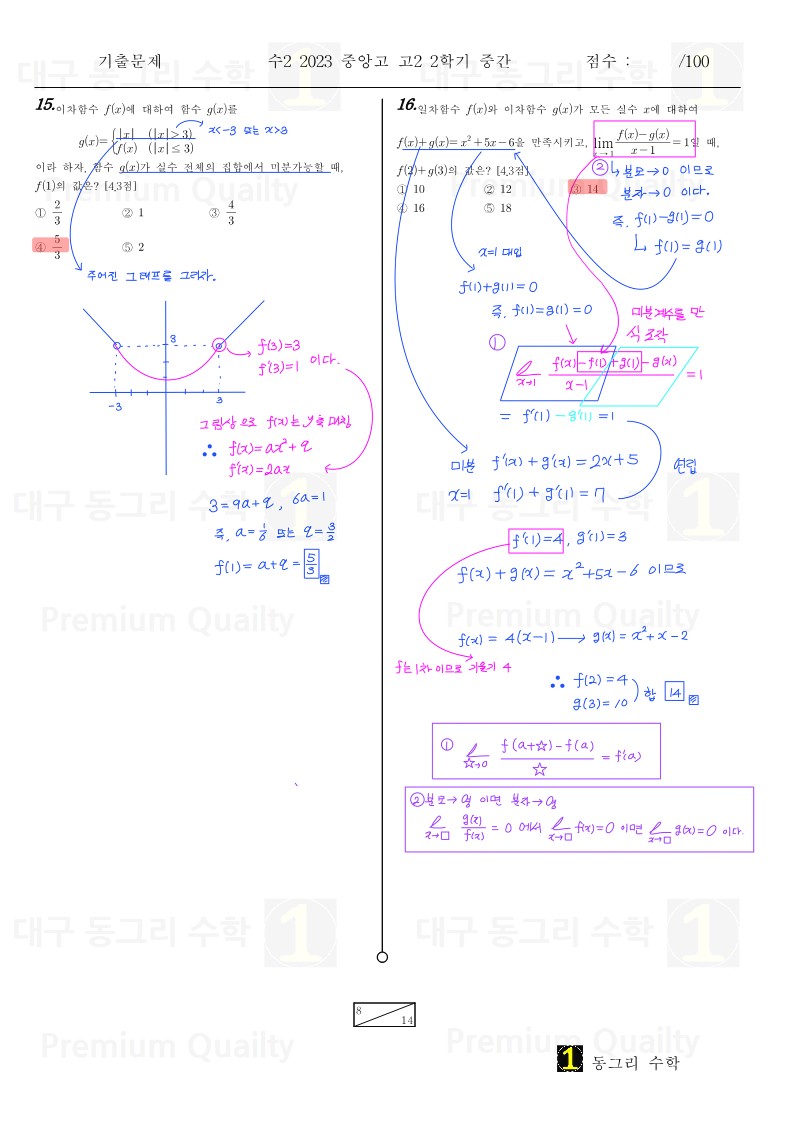 기출문제 수2 2023 중앙고 고2 2학기 중간 점수 : /100
15. 이차함수 f(x)에 대하여 함수 g(x)를
g(x)={|x| (|x|>3)
f(x) (|x|≤3)
x<-3 또는 x>3
이라 하자. 함수 g(x)가 실수 전체의 집합에서 미분가능할 때,
f(1)의 값은? [4.3점]
① 2/3 ② 1 ③ 4/3
④ 5/3 ⑤ 2
주어진 그래프를 그리자.
3
-3 3
f(3)=3
f'(3)=1 이다.
그림상으로 f(x)는 y축 대칭
∴ f(x)=ax²+q
f'(x)=2ax
3=9a+q, 6a=1
즉, a=1/6 또는 q=3/2
f(1)=a+q=5/3
16. 일차함수 f(x)와 이차함수 g(x)가 모든 실수 x에 대하여
f(x)+g(x)=x²+5x-6을 만족시키고, lim x→1 f(x)-g(x)/x-1=1일 때,
f(2)+g(3)의 값은? [4.3점]
① 10 ② 12 ③ 14
④ 16 ⑤ 18
② 분모→0 이므로
분자→0 이다.
즉, f(1)-g(1)=0
f(1)=g(1)
x=1 대입
f(1)+g(1)=0
즉, f(1)=g(1)=0
미분계수를 만
식 조작
①
lim x→1 f(x)-f(1)+g(1)-g(x)/x-1 =1
= f'(1)-g'(1)=1
미분 f'(x)+g'(x)=2x+5
연립
x=1 f'(1)+g'(1)=7
f'(1)=4, g'(1)=3
f(x)+g(x)=x²+5x-6 이므로
f(x)=4(x-1)→g(x)=x²+x-2
f는 1차이므로 기울기 4
∴ f(2)=4
g(3)=10
합 14
① lim ☆→0 f(a+☆)-f(a)/☆ = f'(a)
② 분모→영 이면 분자→영
lim x→□ g(x)/f(x) = 0 에서 lim x→□ f(x)=0 이면 lim x→□ g(x)=0 이다.
8
14
1 동그리 수학
대구 동그리 수학 1
Premium Quailty
대구 동그리 수학 1
Premium Quailty
대구 동그리 수학 1
Premium Quailty
대구 동그리 수학 1
Premium Quailty
대구 동그리 수학 1
Premium Quailty
대구 동그리 수학 1
Premium Quailty